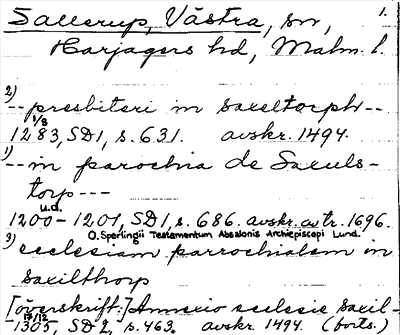 Sallerup, Västra, sn, 1.
Harjagers hd, Malm. l.
2)
-- presbiteri in saxeltorph --
1/8
1283, SD1, s. 631. avskr. 1494.
1)
-- in parochia de Saxuls-
torp ---
u.d.
1200-1201, SD1, s. 686. avskr. av tr. 1696.
O. Sperlingii Testamentum Absalonis Archiepiscopi Lund.
3)
ecclesiam parrochialem in
saxilthorp
[överskrift:] Annexio ecclesie saxil-
13/12
1305, SD 2, s. 463. avskr 1494. (forts.)